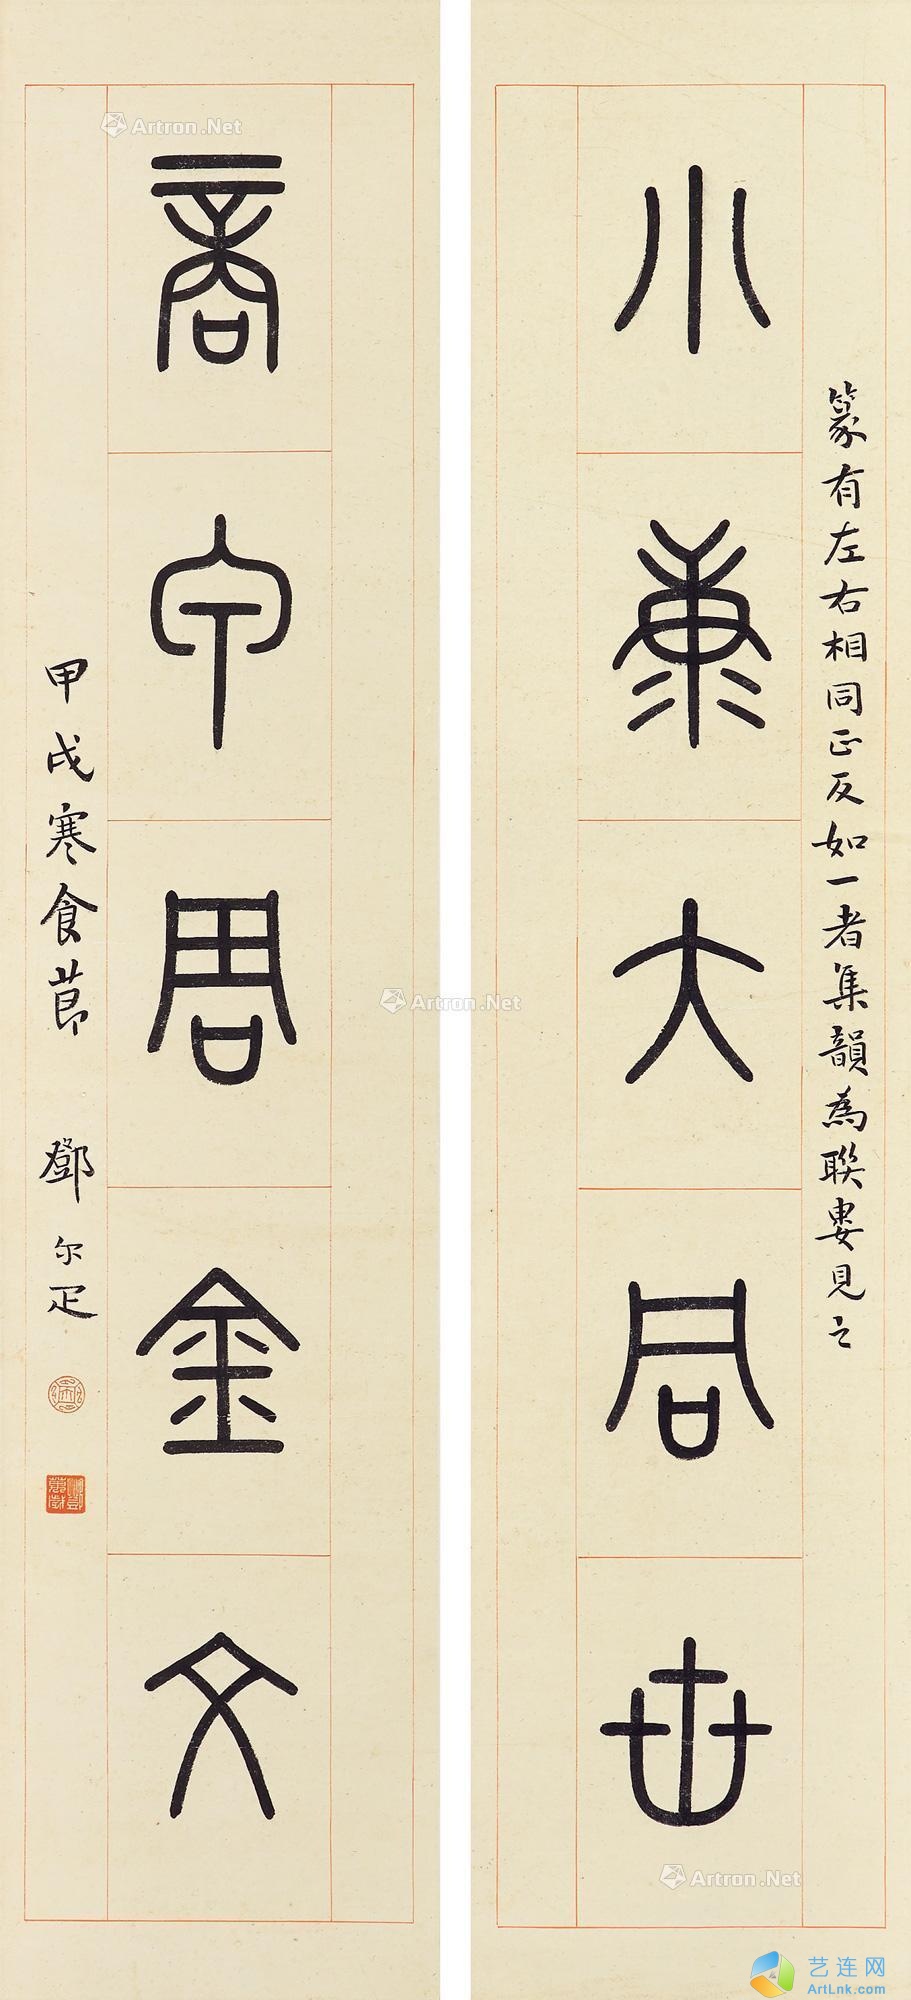 篆有左右相同正反如一者集韻為聯婁見之
小康大同世
商甲周金文
甲戌寒食莭 鄧尔疋
Artron.Net
Artron.Net
Artron.Net
艺连网
ArtLnk.com